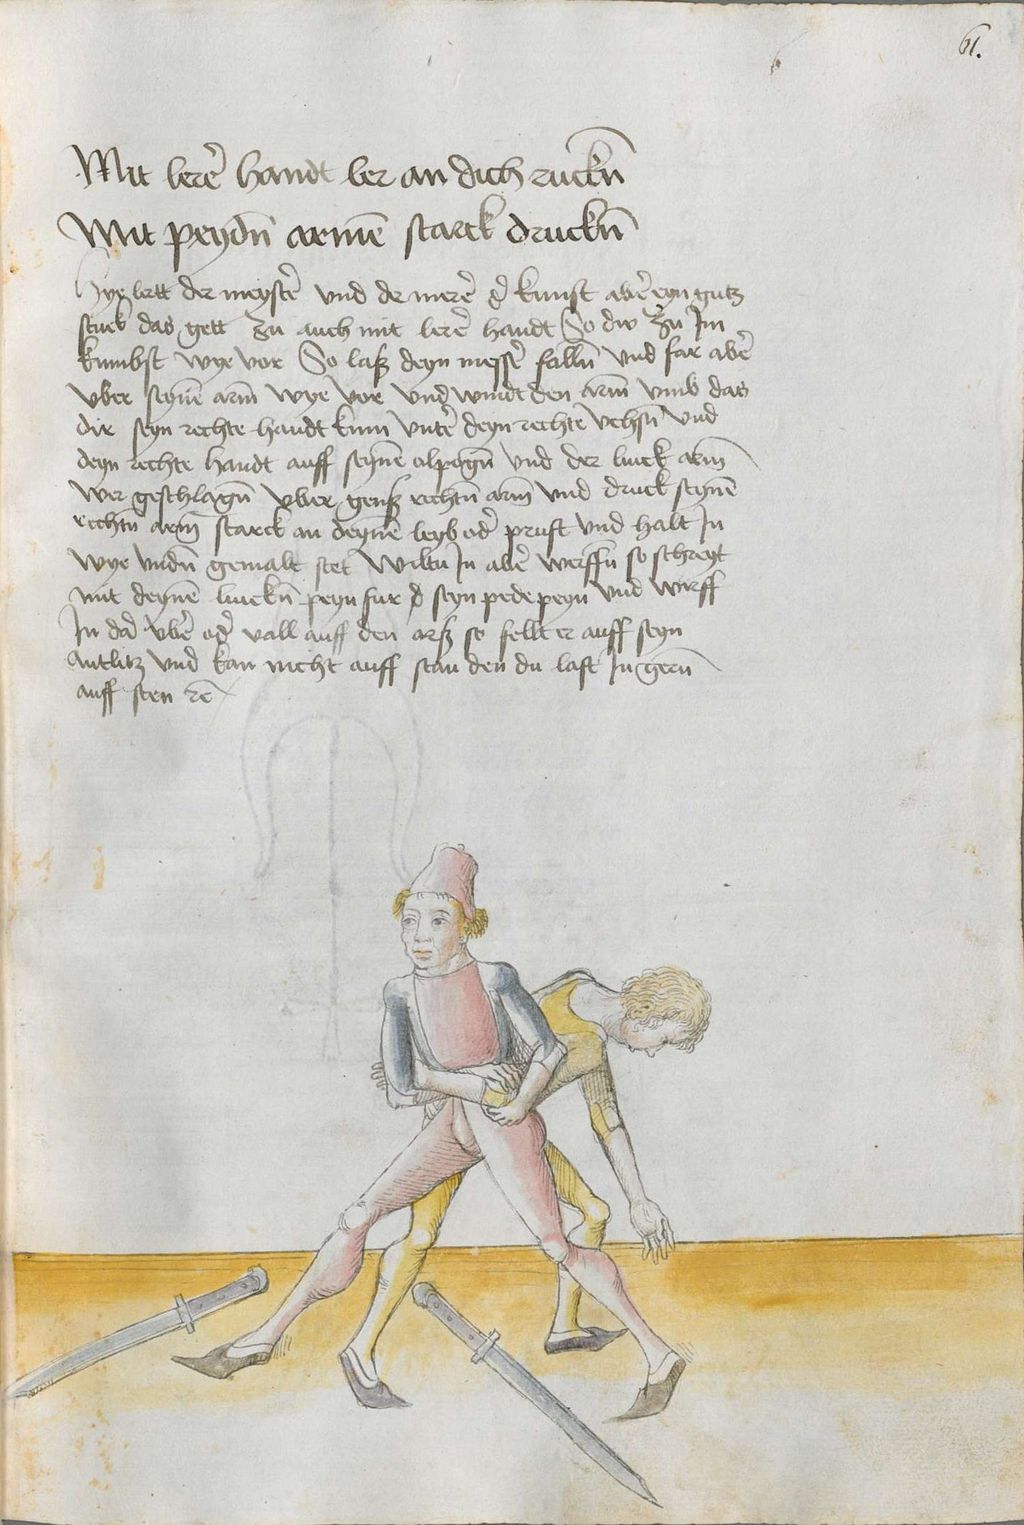 61.
Mit lerer̃ handt ler an dich ruckñ
Mit peydñ armẽ starck druckñ
Hye lertt der meystẽr vnd de merẽ d̃ kunst abẽr eyn gutz
stuck das gett zu auch mit lerẽr handt So dw zu Im
kumbst wye vor So laß deyn messer̃ fallñ vnd far abẽr
vber seynẽ arm̃ wye vor vnd windt den arm̃ vmb das
dir seyn rechte handt kum vntẽr deyn rechte vchsñ vnd
deyn rechte handt auff seynẽ elpogñ vnd der linck arm̃
wer geschlagñ vber rechtñ arm̃ vnd druck seynẽ
rechtñ arm̃ starck an deynẽ leyb odẽr prust vnd halt In
wye vndñ gemalt stet Wiltu In abẽr werffñ so schreyt
mit deynẽ linckñ peyn fur seyn pede peyn vnd wirff
In dar̃ vbẽr odẽr vall auff den arß so fellt er auff seyn
antlitz vnd kan nicht auff stan den du last In gerñ
auff sten